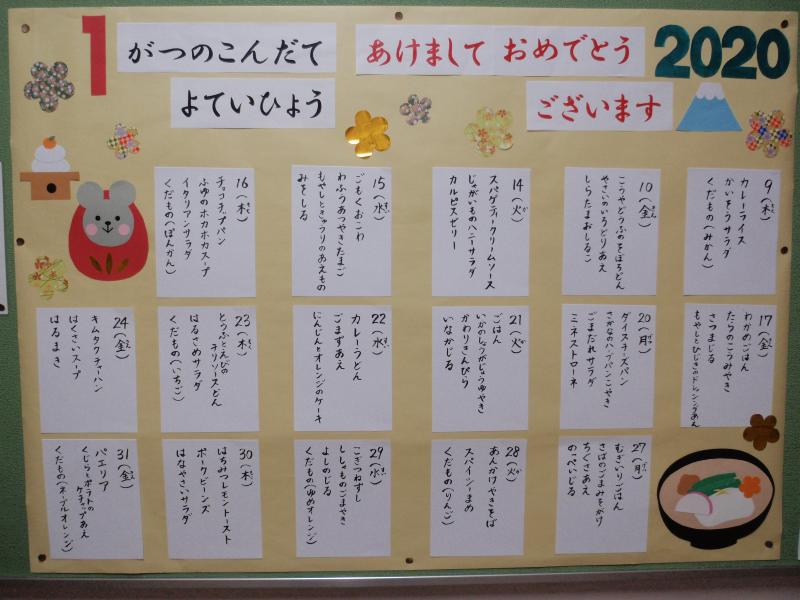 1
がつのこんだて
よていひょう
あけまして おめでとう
ございます
2020
9(木)
カレーライス
かいそうサラダ
くだもの(みかん)
10(金)
こうやどうふのそぼろどん
やさいのいろどりあえ
しらたまおしるこ
14(火)
スパゲティークリームソース
じゃがいものハニーサラダ
カルピスゼリー
15(水)
ごもくおこわ
わふうあつやきたまご
もやしときゅうりのあえもの
みそしる
16(木)
チョコチップパン
ふゆのホカホカスープ
イタリアンサラダ
くだもの(ぽんかん)
17(金)
わかめごはん
たらのこうみやき
さつまじる
もやしとひじきのドレッシングあえ
20(月)
ダイスチーズパン
さかなのハーブパンこやき
ごまだれサラダ
ミネストローネ
21(火)
ごはん
いかのしょうがじょうゆやき
かわりきんぴら
いなかじる
22(水)
カレーうどん
ごまずあえ
にんじんとオレンジのケーキ
23(木)
とうふとえびの
チリソースどん
はるさめサラダ
くだもの(いちご)
24(金)
キムタクチャーハン
はくさいスープ
はるまき
27(月)
むぎいりごはん
さばのごまみそがけ
ちくさあえ
のっぺいじる
28(火)
あんかけやきそば
スパイシーまめ
くだもの(りんご)
29(水)
こぎつねずし
ししゃものごまやき
よしのじる
くだもの(ゆめオレンジ)
30(木)
はちみつレモントースト
ポークビーンズ
はなやさいサラダ
31(金)
パエリア
くじらとポテトの
ケチャップあえ
くだもの(ネーブルオレンジ)